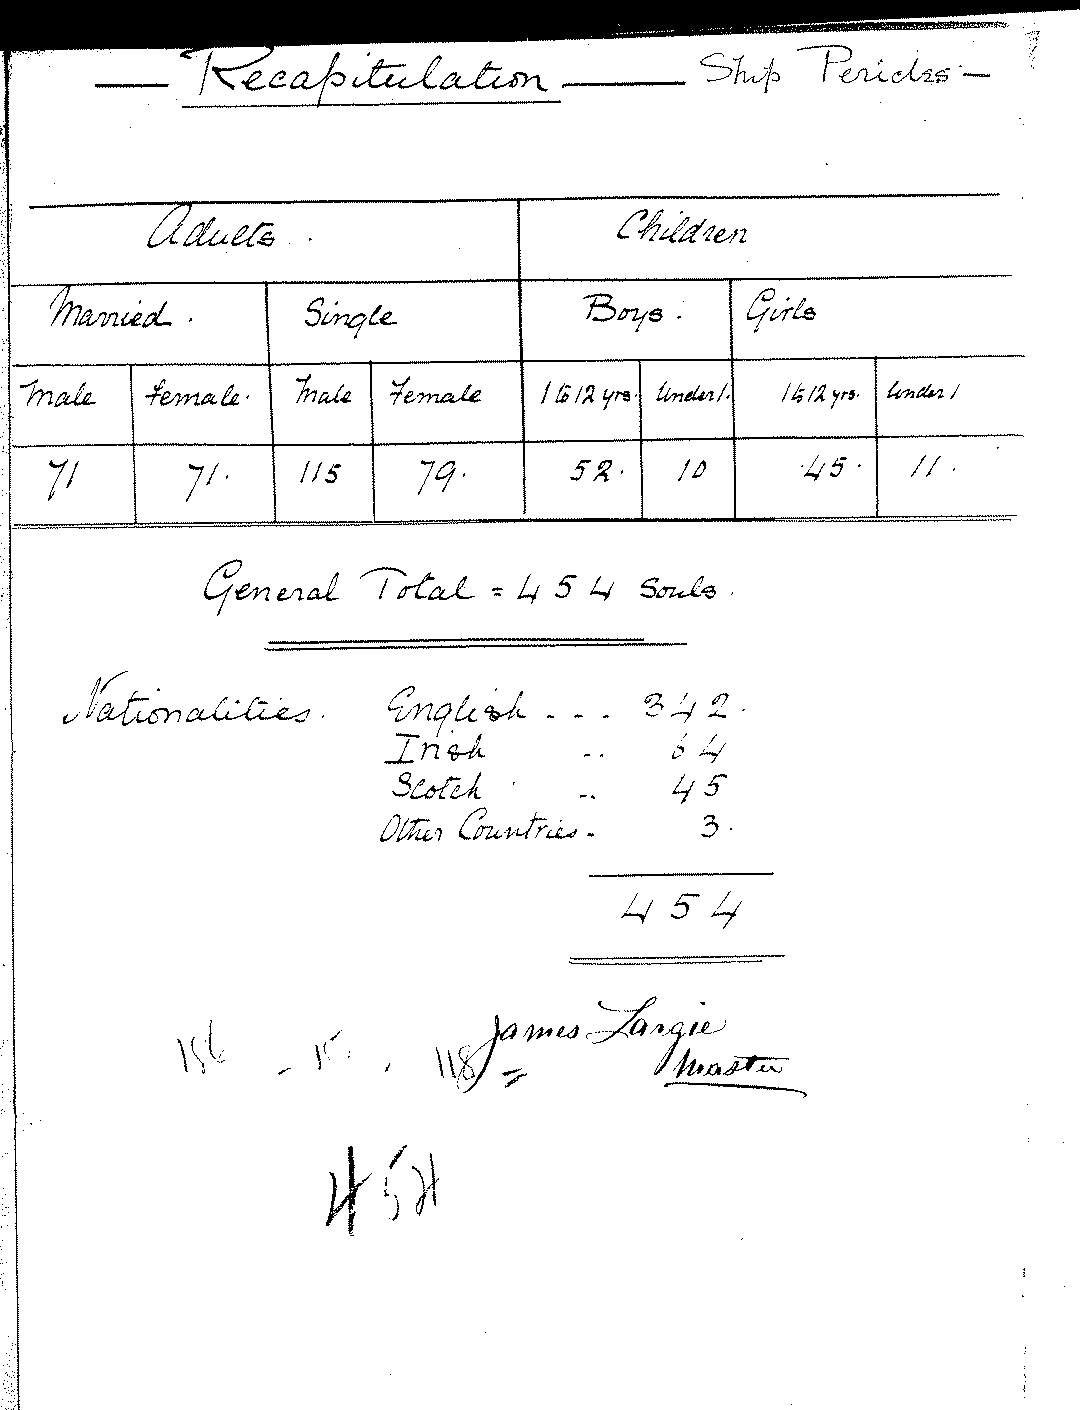 — Recapitulation — Ship Pericles —
Adults. Children
Married. Single Boys. Girls
Male Female. Male Female 1 to 12 yrs. Under 1. 1 to 12 yrs. Under 1
71 71. 115 79. 52. 10 45. 11.
General Total = 454 Souls.
Nationalities. English - - - 342.
Irish -- 64
Scotch -- 45
Other Countries - 3.
454
James Largie
Master
118
454